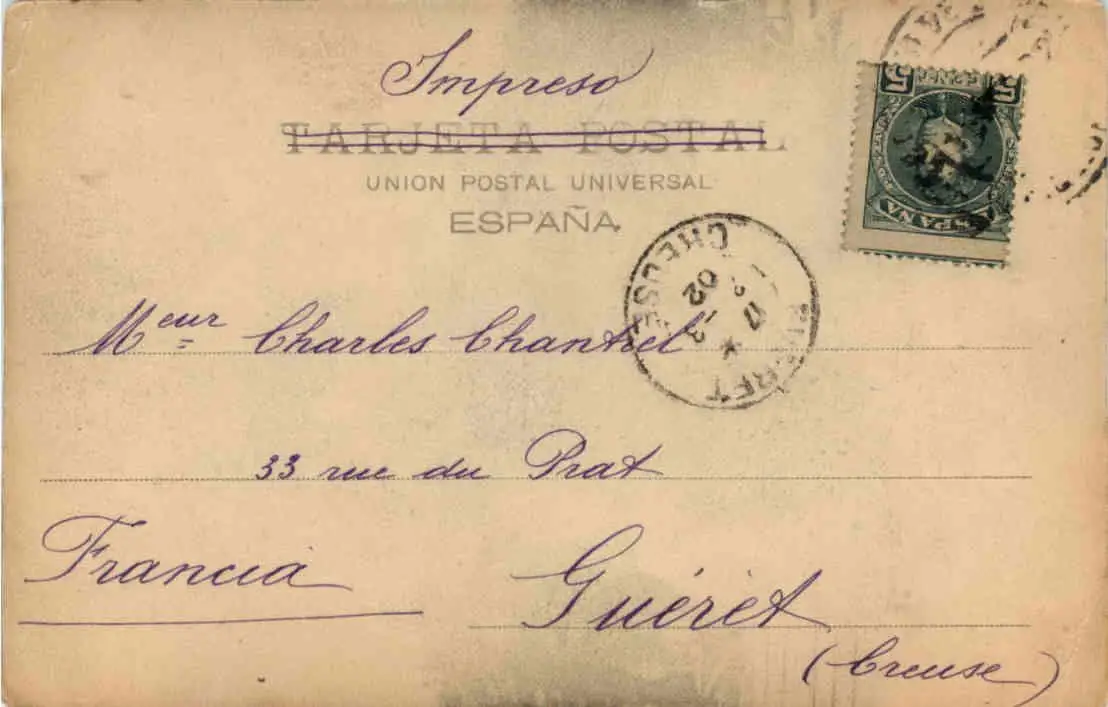 Impreso
TARJETA POSTAL
UNION POSTAL UNIVERSAL
ESPAÑA
5 5
ESPAÑA
CREUSE
17 -3
02
Meur Charles Chantrel
33 rue du Prat
Francia
Guéret
(Creuse)